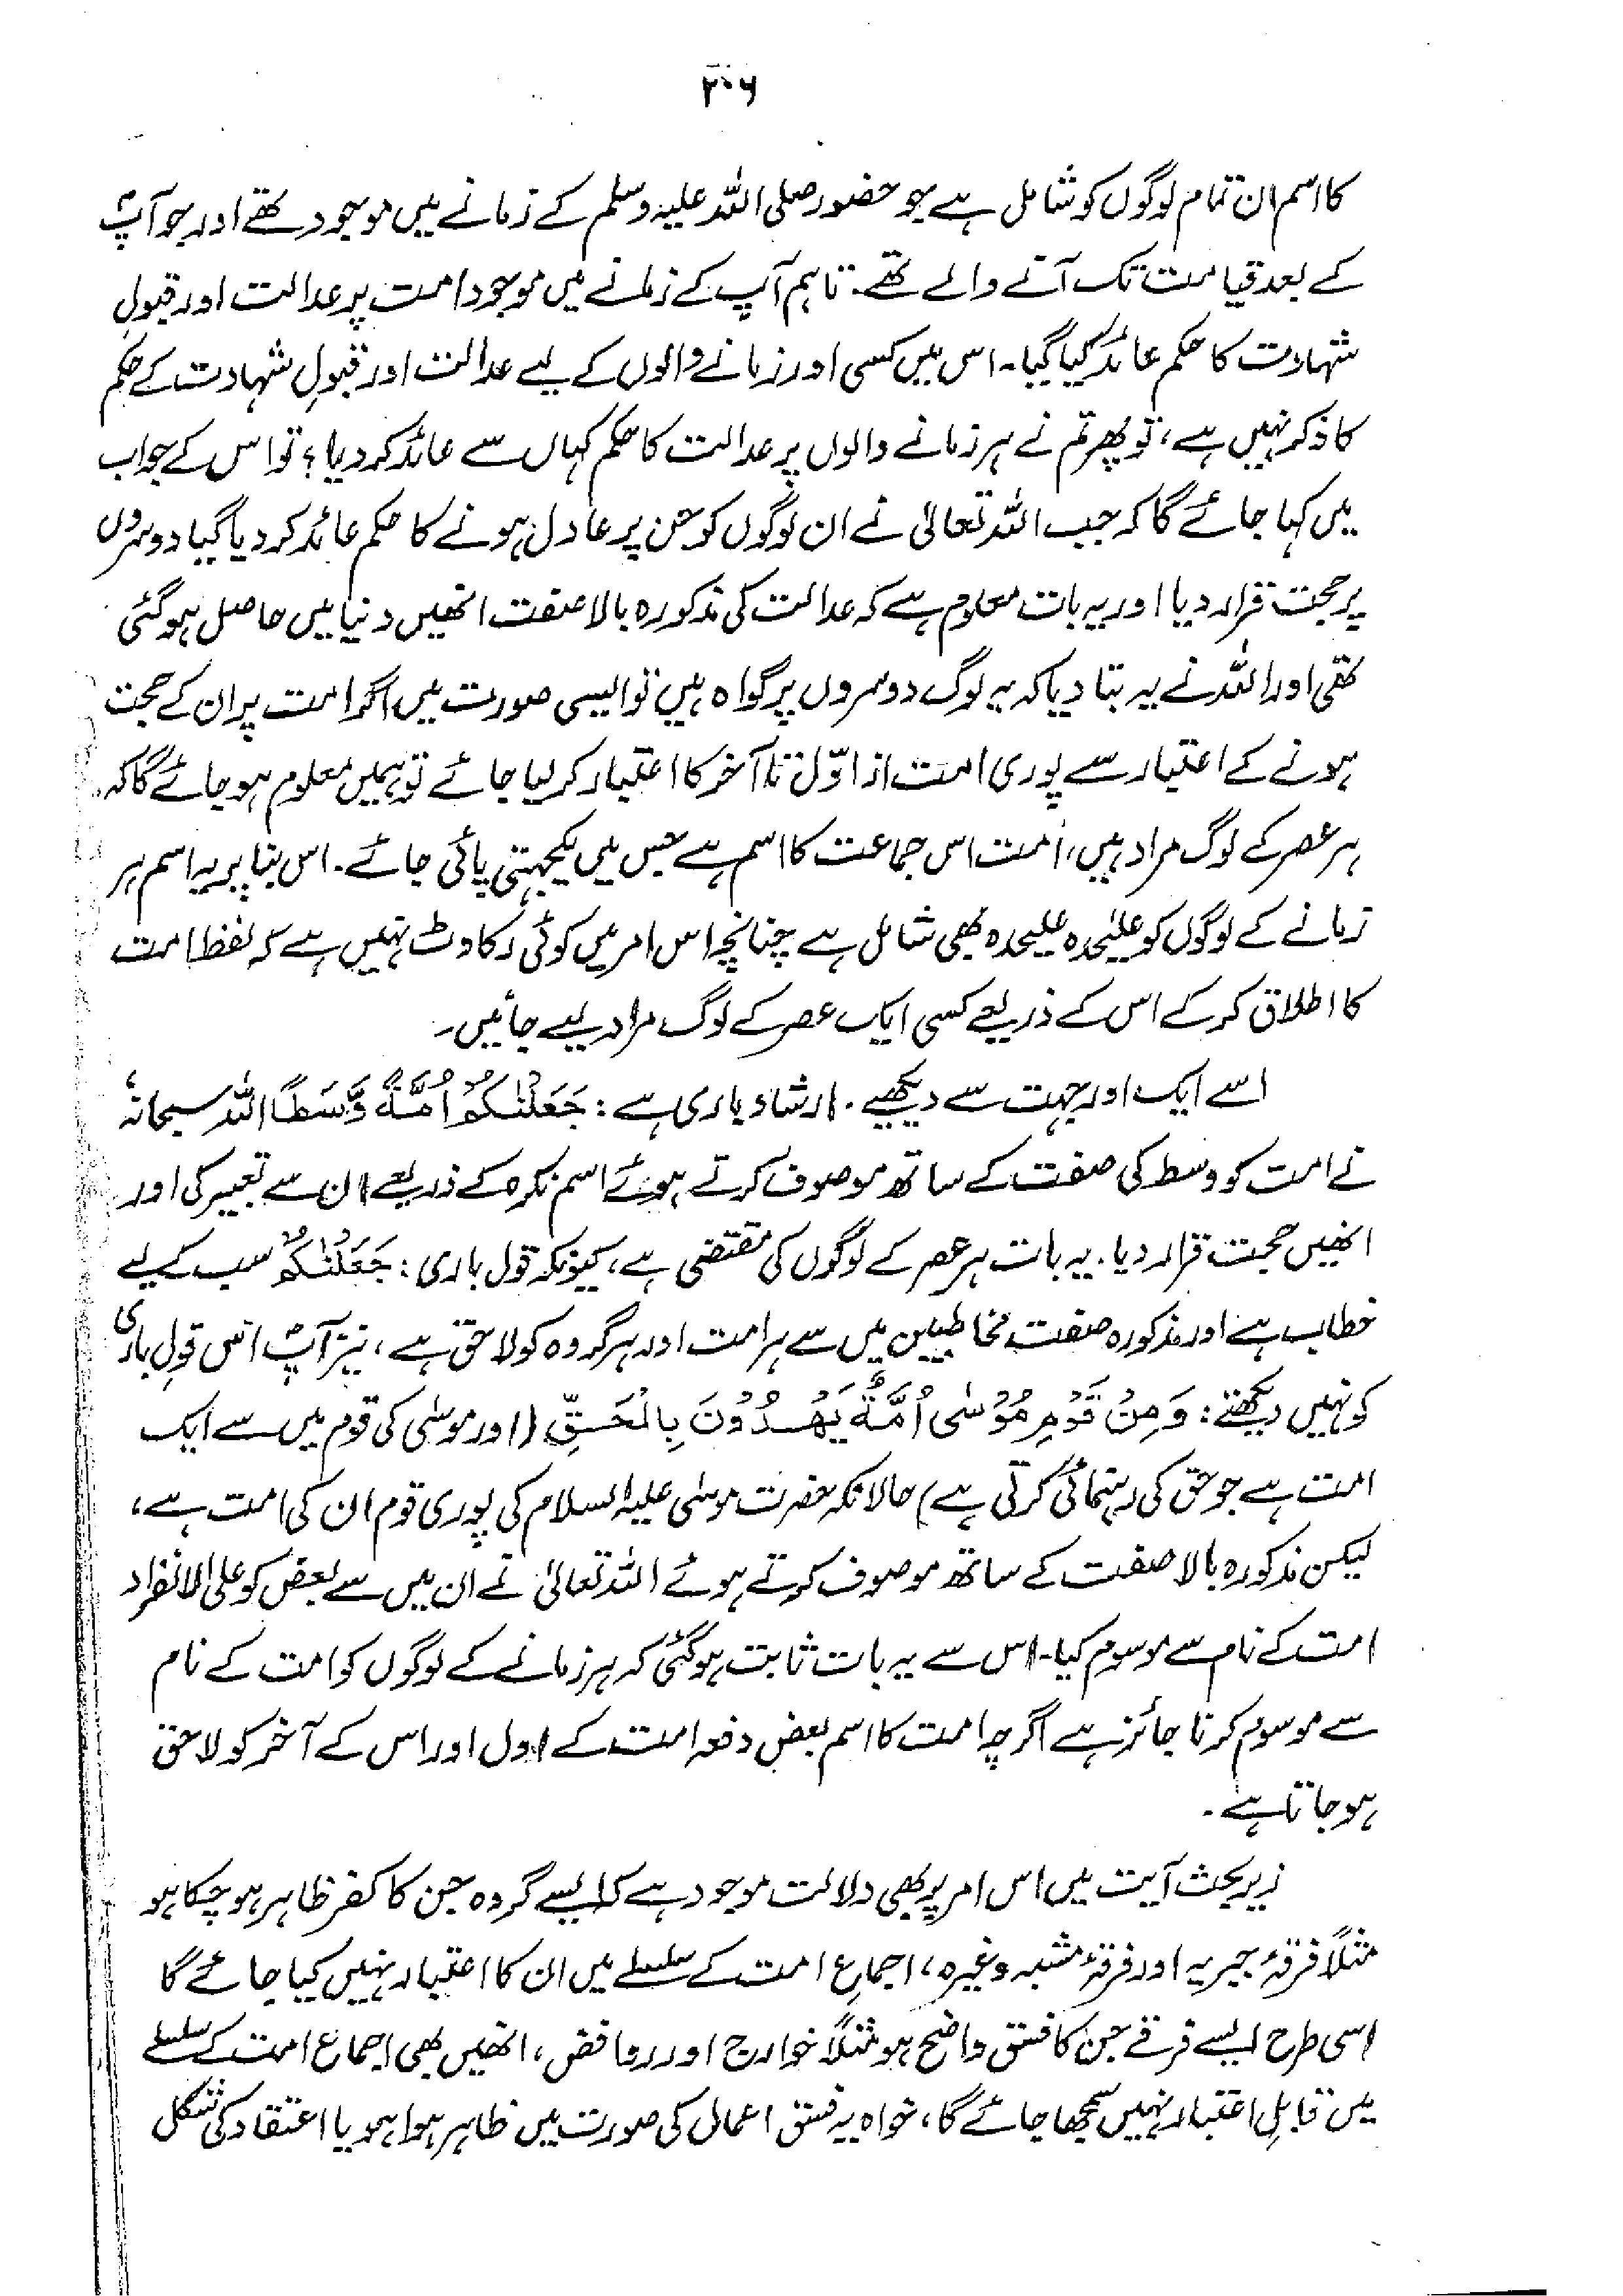 ۲۰۶
کا اسم ان تمام لوگوں کو شامل ہے جو حضور صلی اللہ علیہ وسلم کے زمانے میں موجود تھے اور جو آپؐ
کے بعد قیامت تک آنے والے تھے۔ تاہم آپ کے زمانے میں موجود امت پر عدالت اور قبولِ
شہادت کا حکم عائد کیا گیا۔ اس میں کسی اور زمانے والوں کے لیے عدالت اور قبولِ شہادت کے حکم
کا ذکر نہیں ہے، تو پھر تم نے ہر زمانے والوں پر عدالت کا حکم کہاں سے عائد کر دیا؟ تو اس کے جواب
میں کہا جائے گا کہ جب اللہ تعالیٰ نے ان لوگوں کو جن پر عادل ہونے کا حکم عائد کر دیا گیا دوسروں
پر حجت قرار دیا اور یہ بات معلوم ہے کہ عدالت کی مذکورہ بالا صفت انھیں دنیا میں حاصل ہو گئی
تھی اور اللہ نے یہ بتا دیا کہ یہ لوگ دوسروں پر گواہ ہیں تو ایسی صورت میں اگر امت پر ان کے حجت
ہونے کے اعتبار سے پوری امت از اوّل تا آخر کا اعتبار کر لیا جائے تو ہمیں معلوم ہو جائے گا کہ
ہر عصر کے لوگ مراد ہیں، امت اس جماعت کا اسم ہے جس میں یکجہتی پائی جائے۔ اس بنا پر یہ اسم ہر
زمانے کے لوگوں کو علیحدہ علیحدہ بھی شامل ہے چنانچہ اس امر میں کوئی رکاوٹ نہیں ہے کہ لفظ امت
کا اطلاق کر کے اس کے ذریعے کسی ایک عصر کے لوگ مراد لیے جائیں۔
اسے ایک اور جہت سے دیکھیے۔ ارشاد باری ہے: جَعَلْنٰكُمْ اُمَّةً وَّسَطًا اللہ سبحانہٗ
نے امت کو وسط کی صفت کے ساتھ موصوف کرتے ہوئے اسم نکرہ کے ذریعے ان سے تعبیر کی اور
انھیں حجت قرار دیا۔ یہ بات ہر عصر کے لوگوں کی مقتضی ہے، کیونکہ قول باری: جَعَلْنٰكُمْ سب کے لیے
خطاب ہے اور مذکورہ صفت مخاطبین میں سے ہر امت اور ہر گروہ کو لاحق ہے، نیز آپؐ اس قولِ باری
کو نہیں دیکھتے: وَمِنْ قَوْمِ مُوْسٰى اُمَّةٌ يَهْدُوْنَ بِالْحَقِّ (اور موسیٰ کی قوم میں سے ایک
امت ہے جو حق کی رہنمائی کرتی ہے) حالانکہ حضرت موسیٰ علیہ السلام کی پوری قوم ان کی امت ہے،
لیکن مذکورہ بالا صفت کے ساتھ موصوف کرتے ہوئے اللہ تعالیٰ نے ان میں سے بعض کو علی الانفراد
امت کے نام سے موسوم کیا۔ اس سے یہ بات ثابت ہو گئی کہ ہر زمانے کے لوگوں کو امت کے نام
سے موسوم کرنا جائز ہے اگرچہ امت کا اسم بعض دفعہ امت کے اول اور اس کے آخر کو لاحق
ہو جاتا ہے۔
زیر بحث آیت میں اس امر پر بھی دلالت موجود ہے کہ ایسے گروہ جن کا کفر ظاہر ہو چکا ہو
مثلاً فرقۂ جبریہ اور فرقۂ مشبہ وغیرہ، اجماعِ امت کے سلسلے میں ان کا اعتبار نہیں کیا جائے گا
اسی طرح ایسے فرقے جن کا فسق واضح ہو مثلاً خوارج اور روافض، انھیں بھی اجماع امت کے سلسلے
میں قابلِ اعتبار نہیں سمجھا جائے گا، خواہ یہ فسق اعمال کی صورت میں ظاہر ہوا ہو یا اعتقاد کی شکل